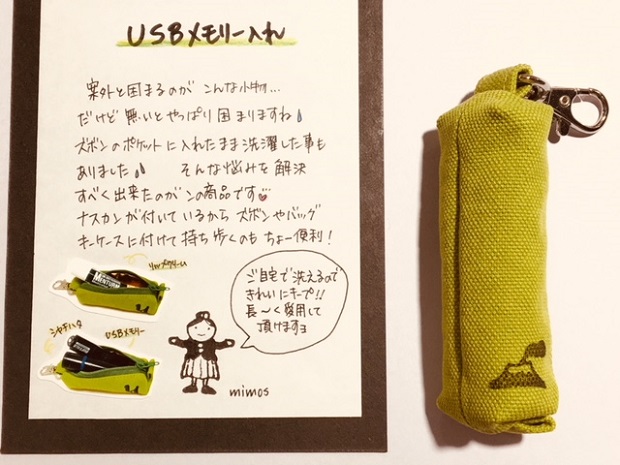 USBメモリー入れ
案外と困まるのが こんな小物…
だけど 無いとやっぱり 困りますね
ズボンのポケットに入れたまま洗濯した事も
ありました そんな悩みを解決
すべく出来たのがンの商品です
ナスカンが付いているから ズボンやバッグ
キーケースに付けて持ち歩くのも ちょー便利!
リップクリーム
MENTURM
シャチハタ
USBメモリー
ご自宅で洗えるので
きれいにキープ!!
長〜く愛用して
頂けますヨ
mimos